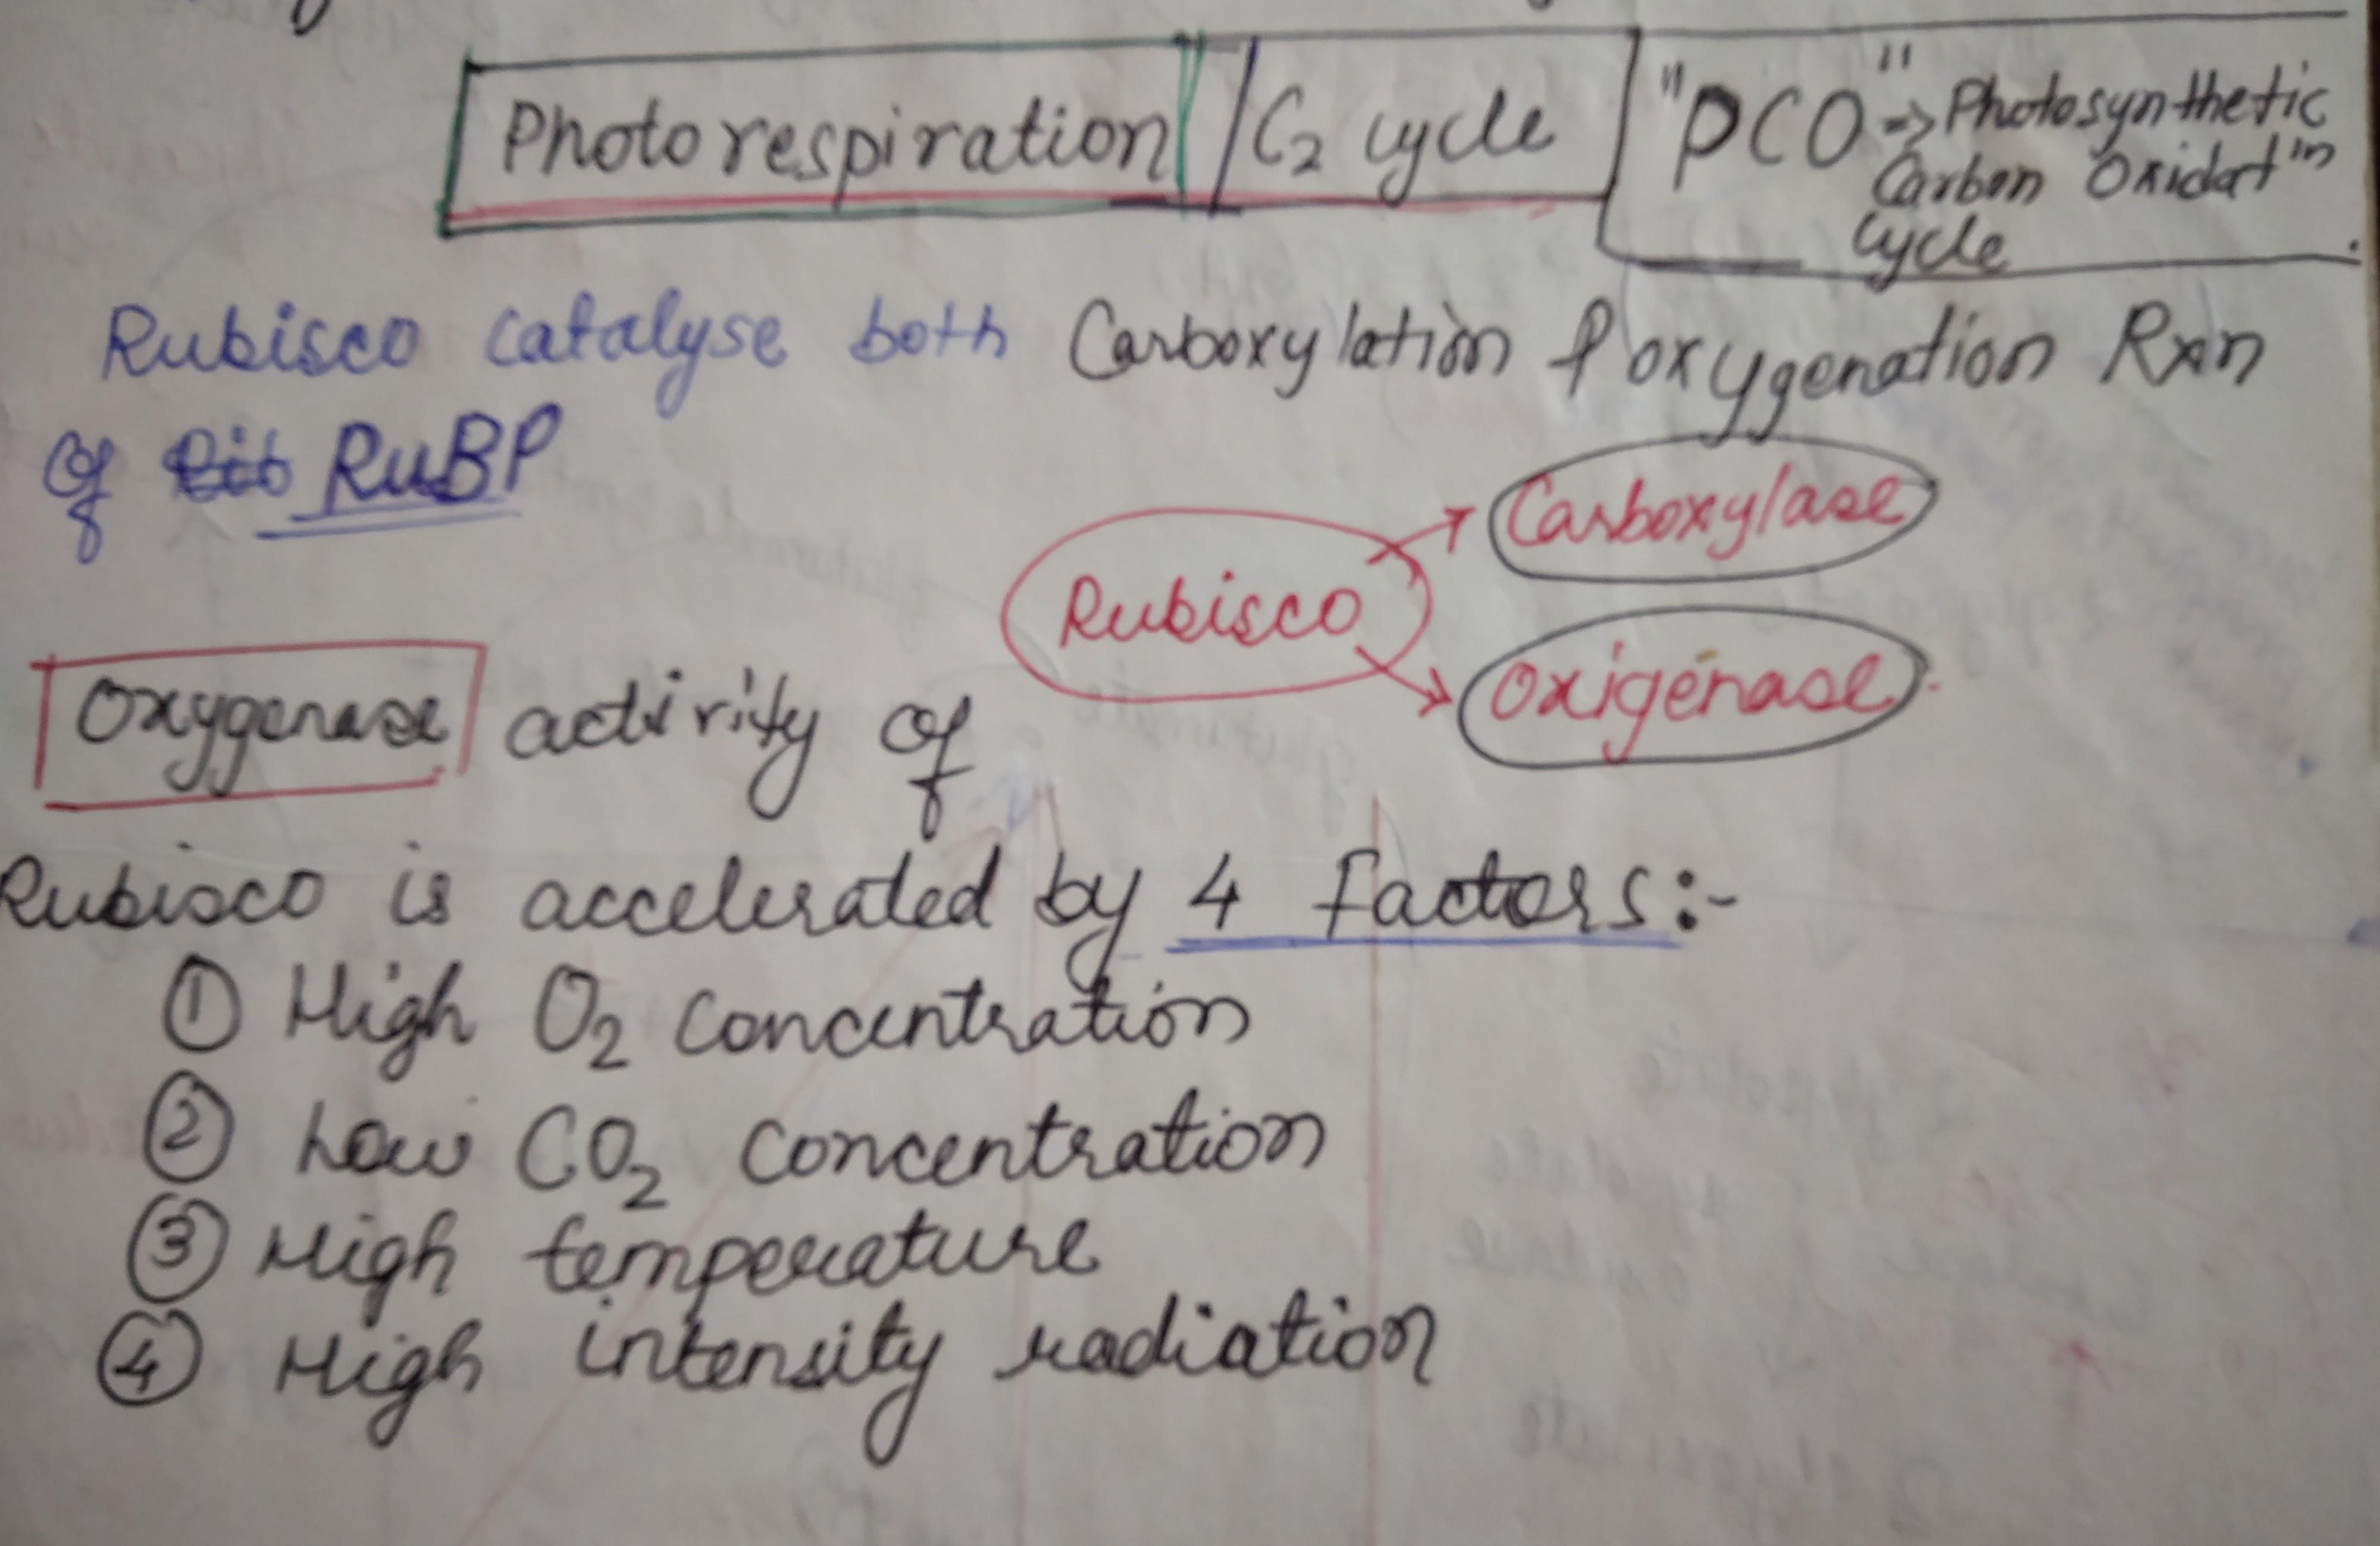 Photorespiration / C₂ cycle "PCO" → Photosynthetic
Carbon Oxidatⁱⁿ
Cycle
Rubisco catalyse both Carboxylation & oxygenation Rxn
of RuBP
Rubisco
Carboxylase
Oxigenase
Oxygenase activity of
Rubisco is accelerated by 4 factors:-
① High O₂ concentration
② Low CO₂ concentration
③ High temperature
④ High intensity radiation